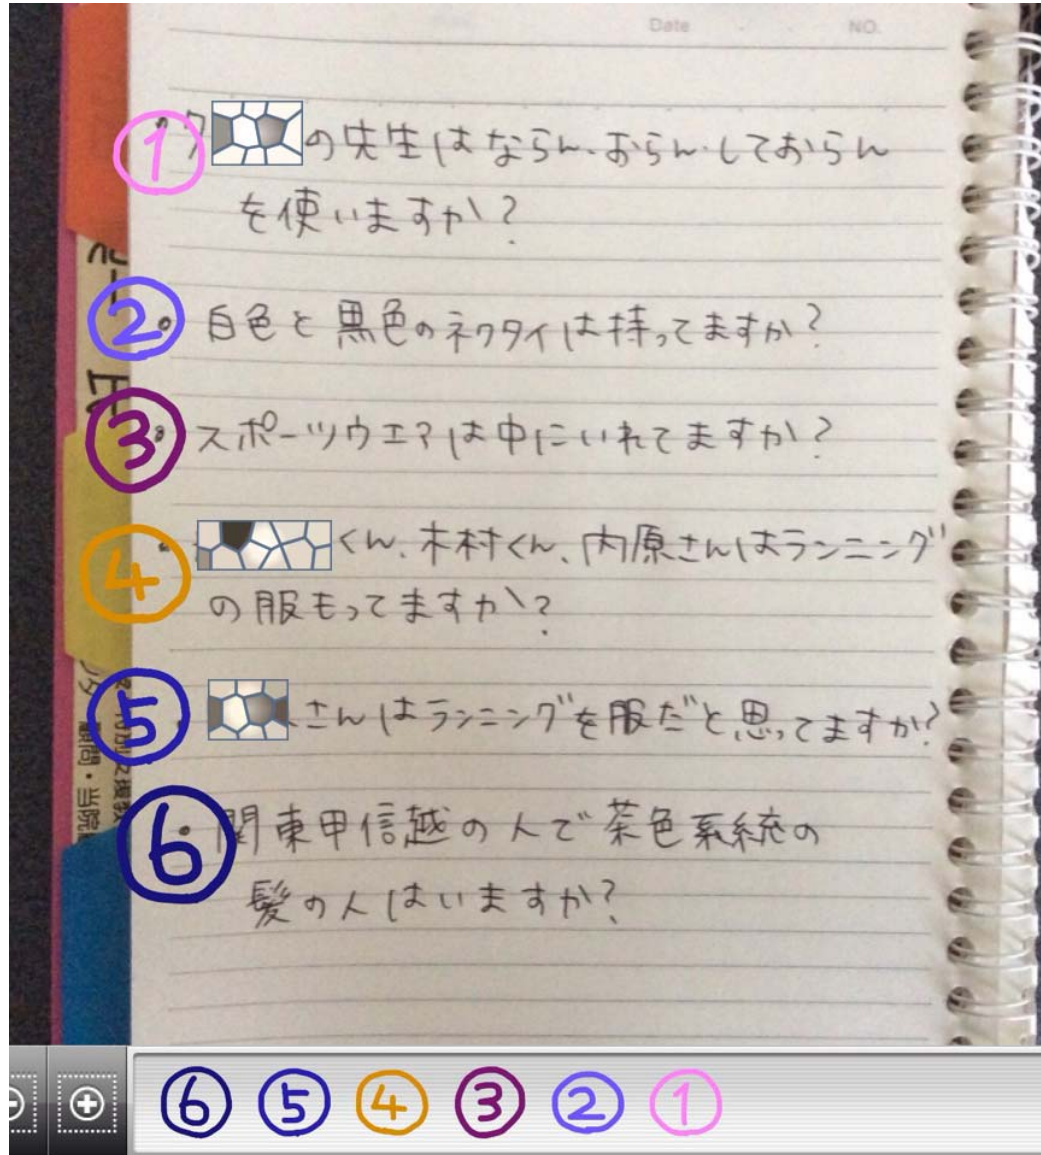 Date NO.
① の先生はならん、おらん、しておらん
を使いますか?
② 白色と黒色のネクタイは持ってますか?
③ スポーツウエアは中にいれてますか?
④ くん、木村くん、内原さんはランニング
の服もってますか?
⑤ さんはランニングを服だと思ってますか?
⑥ 関東甲信越の人で茶色系統の
髪の人はいますか?
顧問・当院
⑥ ⑤ ④ ③ ② ①